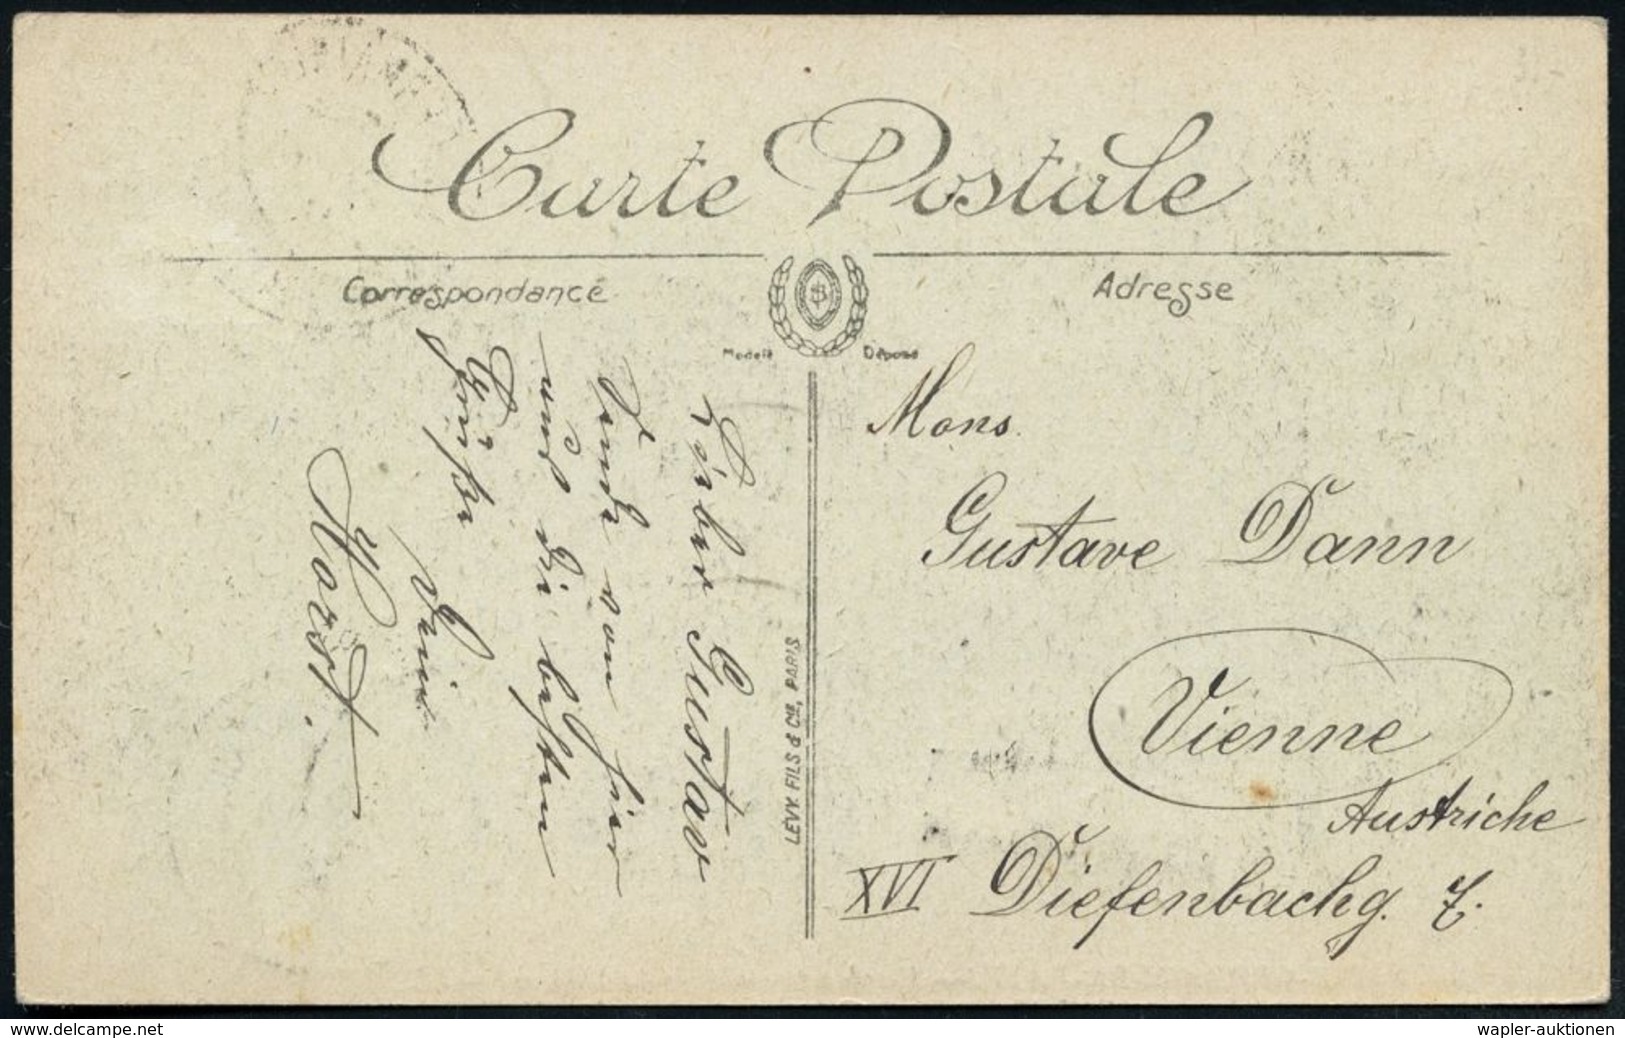 Carte Postale
Correspondance
Adresse
Modèle Déposé
Lieber Gustav
Sende von hier
und die besten
Grüße
Dein
Horst.
LEVY FILS & Cie, PARIS
Mons.
Gustave Dann
Vienne
Austriche
XVI Diefenbachg. 7.
www.delcampe.net
wapler-auktionen